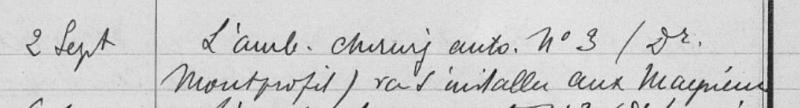 2 Sept L'amb. chirurg auto. N° 3 (Dr.
Montprofit) va s'installer aux